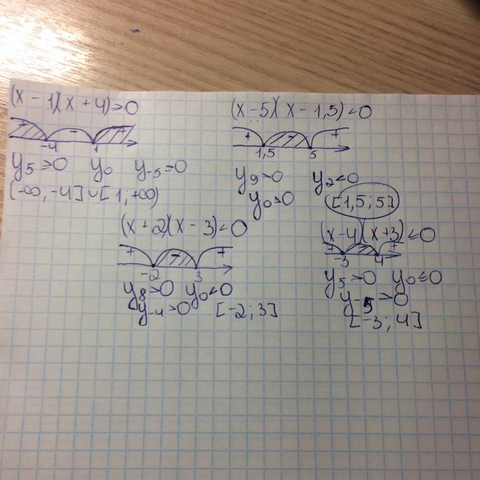 (x-1)(x+4)>0
+ - +
-4 1
y5>0 y0 y-5>0
[-∞, -4]∪[1, +∞)
(x-5)(x-1,5)<0
+ - +
1,5 5
y9>0 y2<0
y0>0
([1,5; 5])
(x+2)(x-3)<0
+ - +
-2 3
y8>0 y0<0
y-4>0 [-2; 3]
(x-4)(x+3)≤0
+ - +
-3 4
y5>0 y0≤0
y-5>0
[-3; 4]